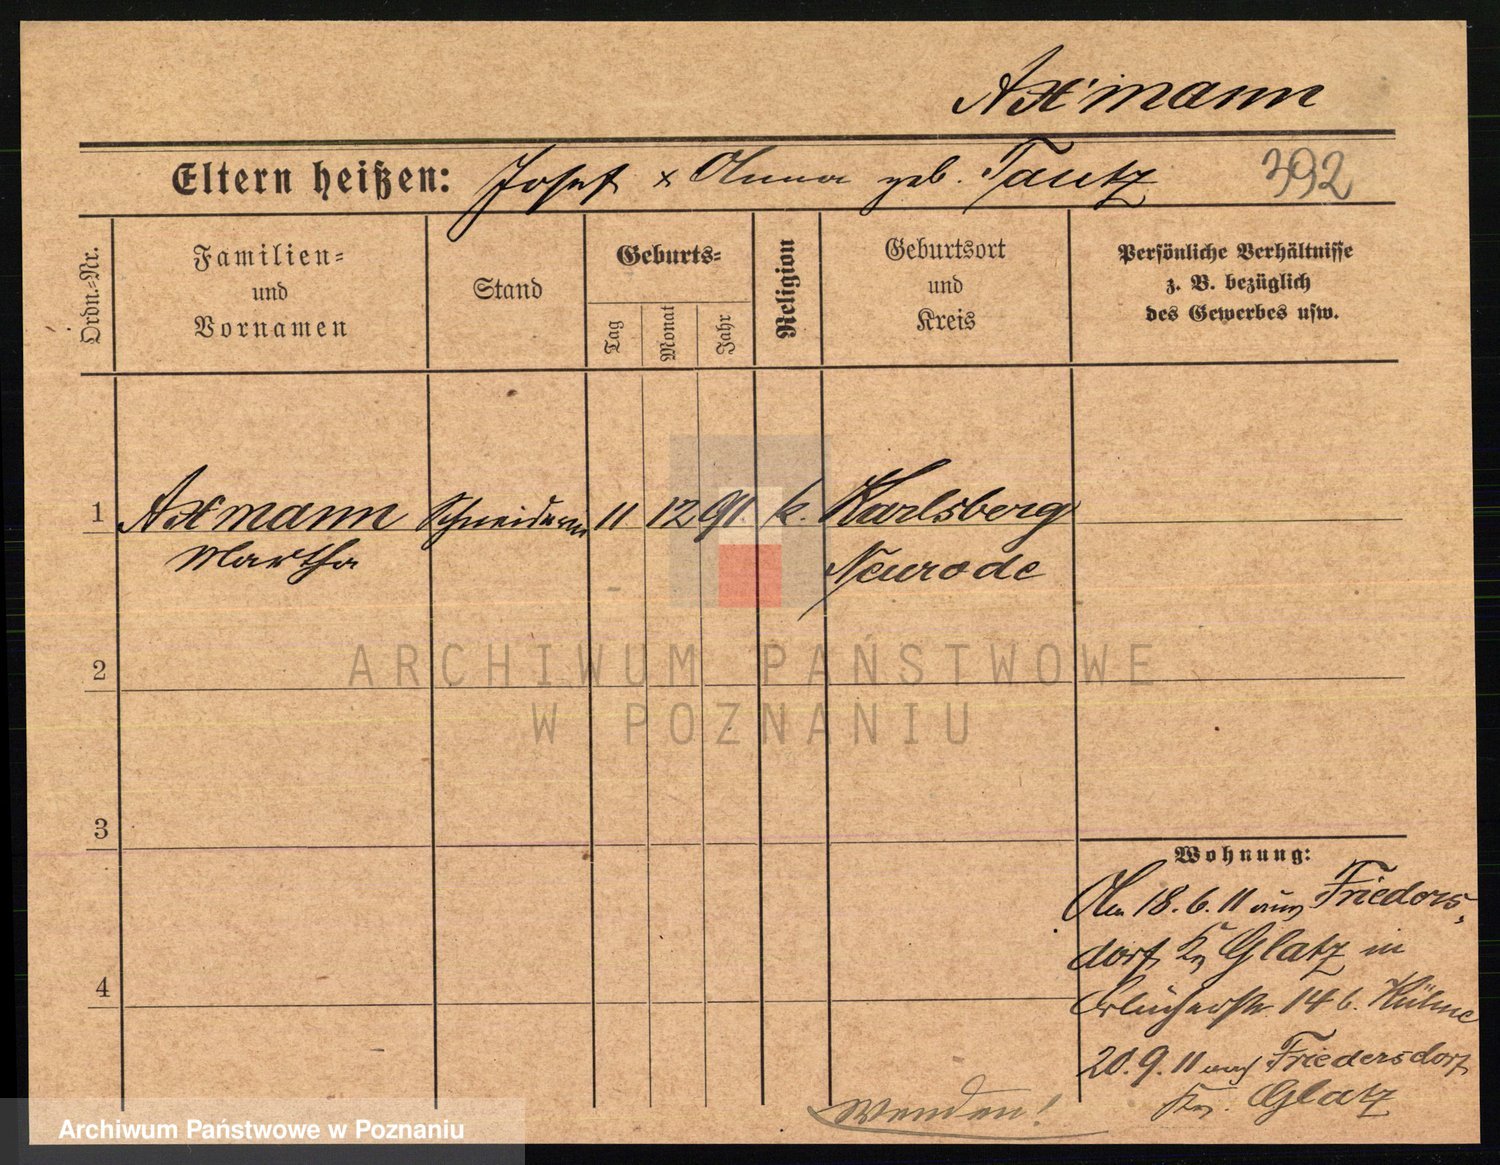 Axmann
Eltern heißen: Josef x Anna geb. Tautz 392
Ordn.-Nr.
Familien-
und
Vornamen
Stand
Geburts-
Tag
Monat
Jahr
Religion
Geburtsort
und
Kreis
Persönliche Verhältnisse
z. B. bezüglich
des Gewerbes usw.
1 Axmann Schneiderin 11 12 91. k. Karlsberg
Martha Neurode
2
ARCHIWUM PAŃSTWOWE
W POZNANIU
3
Wohnung:
Am 18.6.11 aus Frieders-
dorf Kr Glatz in
4
14 b. Kühne
20.9.11 nach Friedersdorf
Kr. Glatz
Wenden!
Archiwum Państwowe w Poznaniu